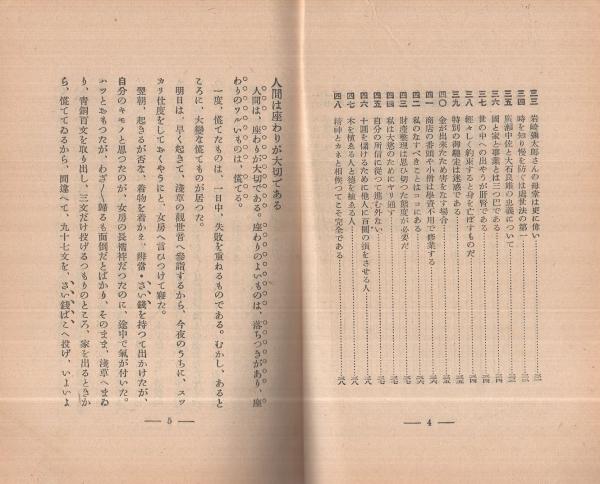 三三 岩崎彌太郎さんの母堂は更に偉い
三四 時を知り慢を防ぐは處世法の第一
三五 廣瀬中佐と大石良雄の忠義について
三六 國と家と事業とは三つ巴である
三七 世の中への出やうが肝腎である
三八 輕々しく約束すると身を亡ぼすものだ
三九 特別の御馳走は迷惑である
四〇 金が出來たため害をなす場合
四一 商店の番頭や小僧は學資不用で修業する
四二 私のなすべきことはココにある
四三 財産整理は思ひ切つた態度が必要だ
四四 私は大慾のためにヤリ通す
四五 自分の所信に從つて進む外ない
四六 十圓を儲けるために他人に百圓の損をさせる人
四七 木を植ゑる人と德を植ゑる人
四八 精神とカネと相俟つてこそ完全である
— 4 —
人間は座わりが大切である
人間は、座わりが大切である。座わりのよいものは、落ちつきがあり、座
わりのワルいものは、慌てる。
一度、慌てたものは、一日中、失敗を重ねるものである。むかし、あると
ころに、大變な慌てものが居つた。
明日は、早く起きて、淺草の觀世音へ參詣するから、今夜のうちに、スツ
カリ仕度をしておくやうにと、女房へ言ひつけて寢た。
翌朝、起きるが否な、着物を着かへ、辨當・さい錢を持つて出かけたが、
自分のキモノと思つたのが、女房の長襦袢だつたのに、途中で氣が付いた。
ハツとおもつたが、わざ〱歸るも面倒だとばかり、そのまま、淺草へまゐ
り、青銅百文を取り出し、三文だけ投げるつもりのところ、家を出るときか
ら、慌ててゐるから、間違へて、九十七文を、さい錢ばこへ投げ、いよいよ
— 5 —